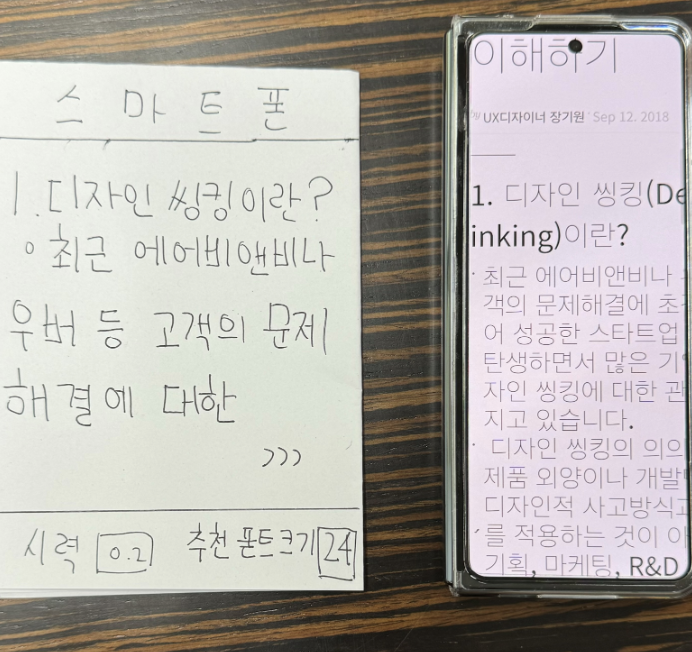 스마트폰
1. 디자인 씽킹이란?
◦ 최근 에어비앤비나
우버 등 고객의 문제
해결에 대한
>>>
시력 0.2 추천 폰트크기 24
이해하기
by UX디자이너 장기원 · Sep 12. 2018
1. 디자인 씽킹(De
inking)이란?
· 최근 에어비앤비나
객의 문제해결에 초
어 성공한 스타트업
탄생하면서 많은 기
자인 씽킹에 대한 관
지고 있습니다.
· 디자인 씽킹의 의의
제품 외양이나 개발
디자인적 사고방식
를 적용하는 것이 이
기획, 마케팅, R&D